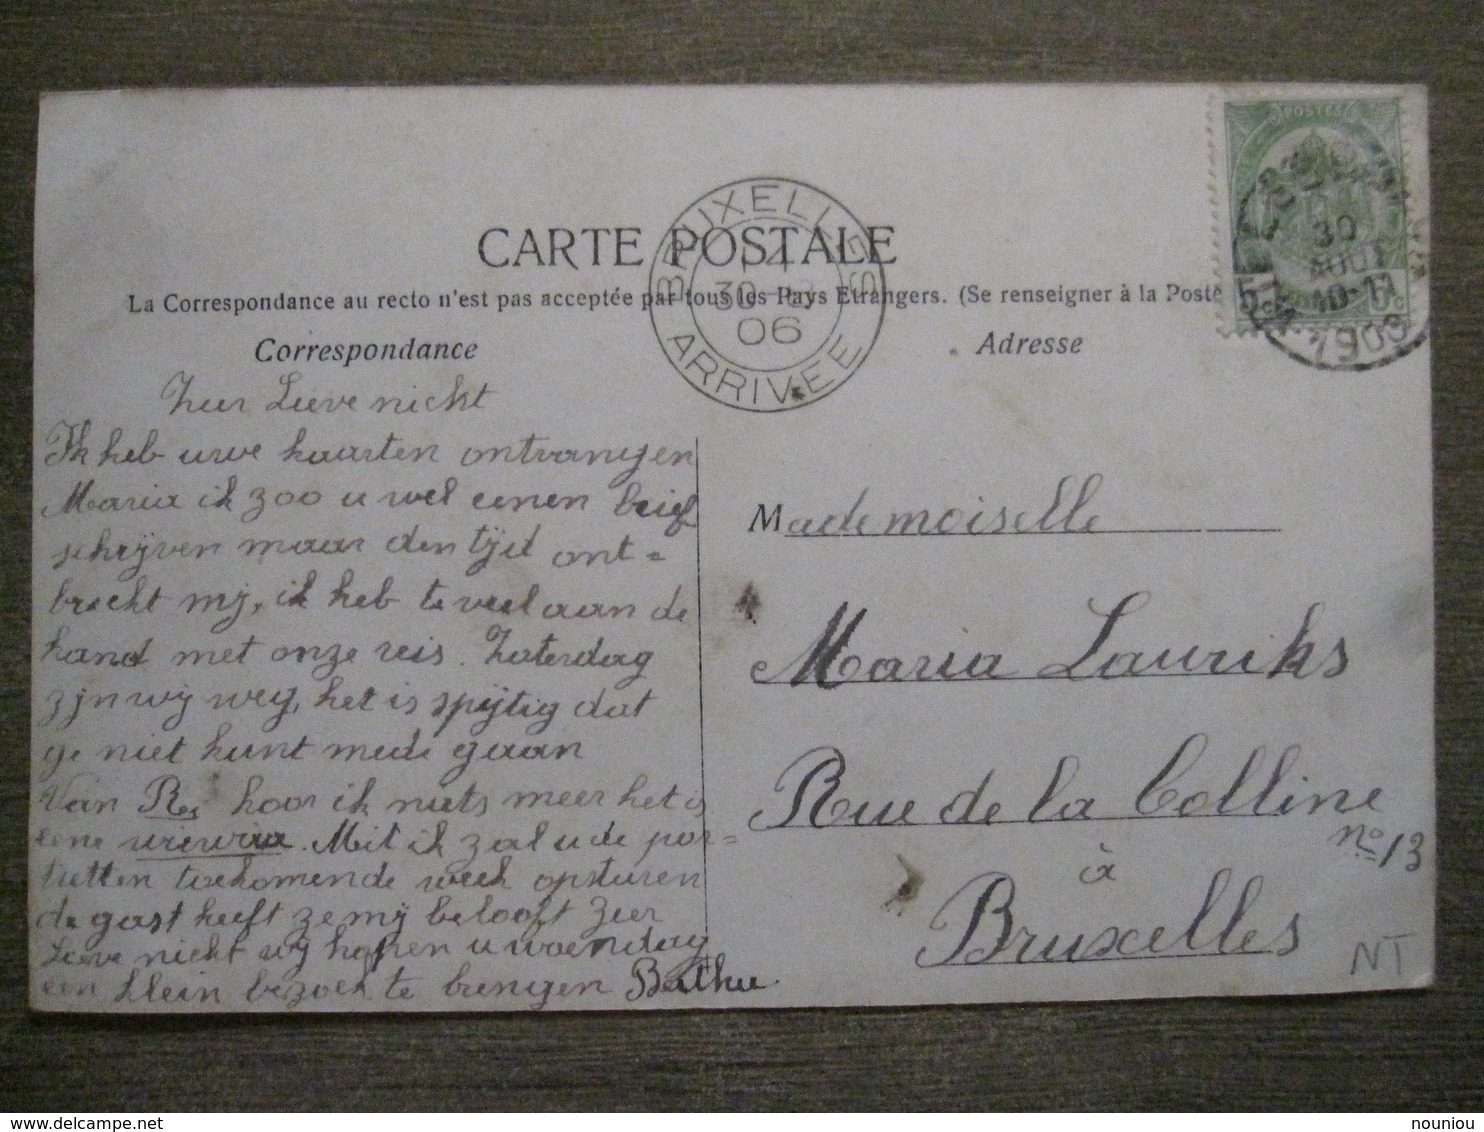 CARTE POSTALE
La Correspondance au recto n'est pas acceptée par tous les Pays Etrangers. (Se renseigner à la Poste
Correspondance
Adresse
BRUXELLES
30 8
06
ARRIVÉE
POSTES
30
AOUT
10-11
1906
Zeer Lieve nicht
Ik heb uwe kaarten ontvangen
Maria ik zoo u wel eenen brief
schrijven maar den tijd ont=
brecht mij, ik heb te veel aan de
hand met onze reis. Zaterdag
zijn wij weg, het is spijtig dat
ge niet kunt mede gaan
Van hoor ik niets meer het is
eene . Mit ik zal u de por=
tretten toekomende week opsturen
de gast heeft ze mij belooft Zeer
Lieve nicht wij hopen u woendag
een klein bezoek te brengen
Mademoiselle
Maria Lauriks
Rue de la Colline
no 13
à
Bruxelles
NT
nouniou / delcampe.net